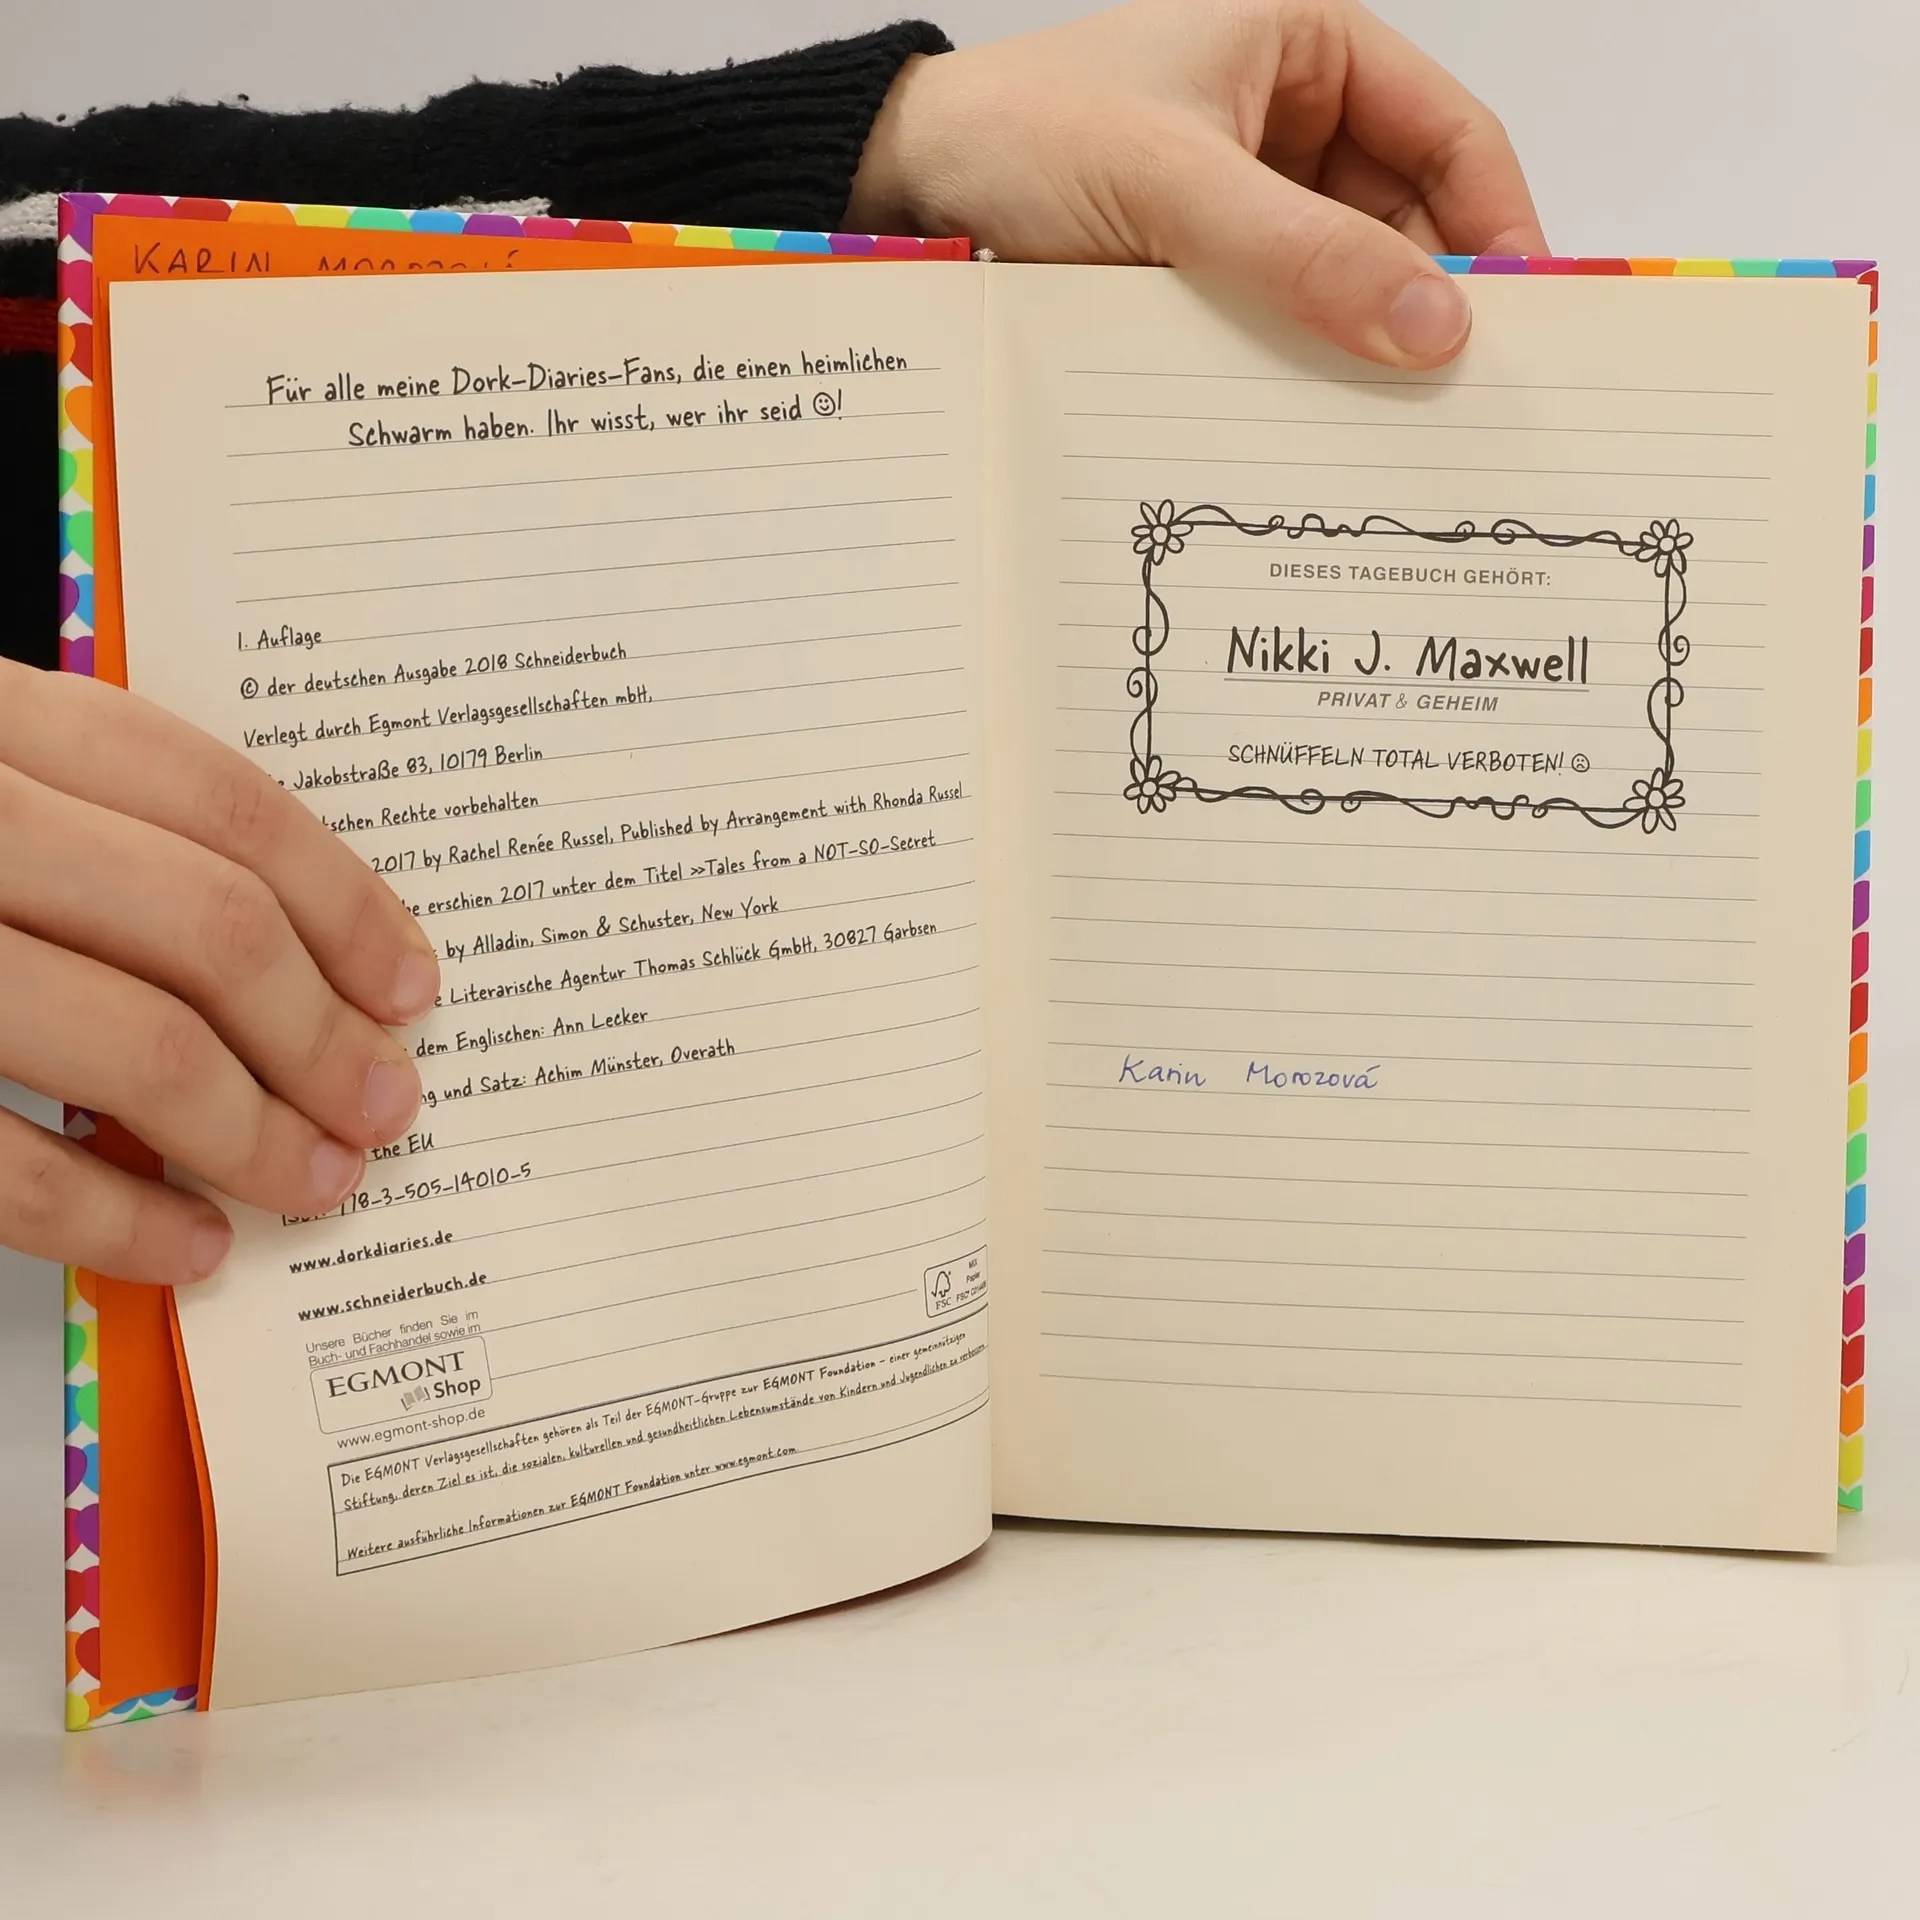 KARIN
Für alle meine Dork-Diaries-Fans, die einen heimlichen
Schwarm haben. Ihr wisst, wer ihr seid ☺!
1. Auflage
© der deutschen Ausgabe 2018 Schneiderbuch
Verlegt durch Egmont Verlagsgesellschaften mbH,
Jakobstraße 83, 10179 Berlin
Rechte vorbehalten
2017 by Rachel Renée Russel, Published by Arrangement with Rhonda Russel
erschien 2017 unter dem Titel »Tales from a NOT-SO-Secret
by Alladin, Simon & Schuster, New York
Literarische Agentur Thomas Schlück GmbH, 30827 Garbsen
dem Englischen: Ann Lecker
und Satz: Achim Münster, Overath
the EU
78-3-505-14010-5
www.dorkdiaries.de
www.schneiderbuch.de
Unsere Bücher finden Sie im
Buch- und Fachhandel sowie im
EGMONT
Shop
www.egmont-shop.de
MIX
Papier
FSC
Die EGMONT Verlagsgesellschaften gehören als Teil der EGMONT-Gruppe zur EGMONT Foundation – einer gemeinnützigen
Stiftung, deren Ziel es ist, die sozialen, kulturellen und gesundheitlichen Lebensumstände von Kindern und Jugendlichen zu verbessern.
Weitere ausführliche Informationen zur EGMONT Foundation unter www.egmont.com
DIESES TAGEBUCH GEHÖRT:
Nikki J. Maxwell
PRIVAT & GEHEIM
SCHNÜFFELN TOTAL VERBOTEN! ☹
Karin Morozová